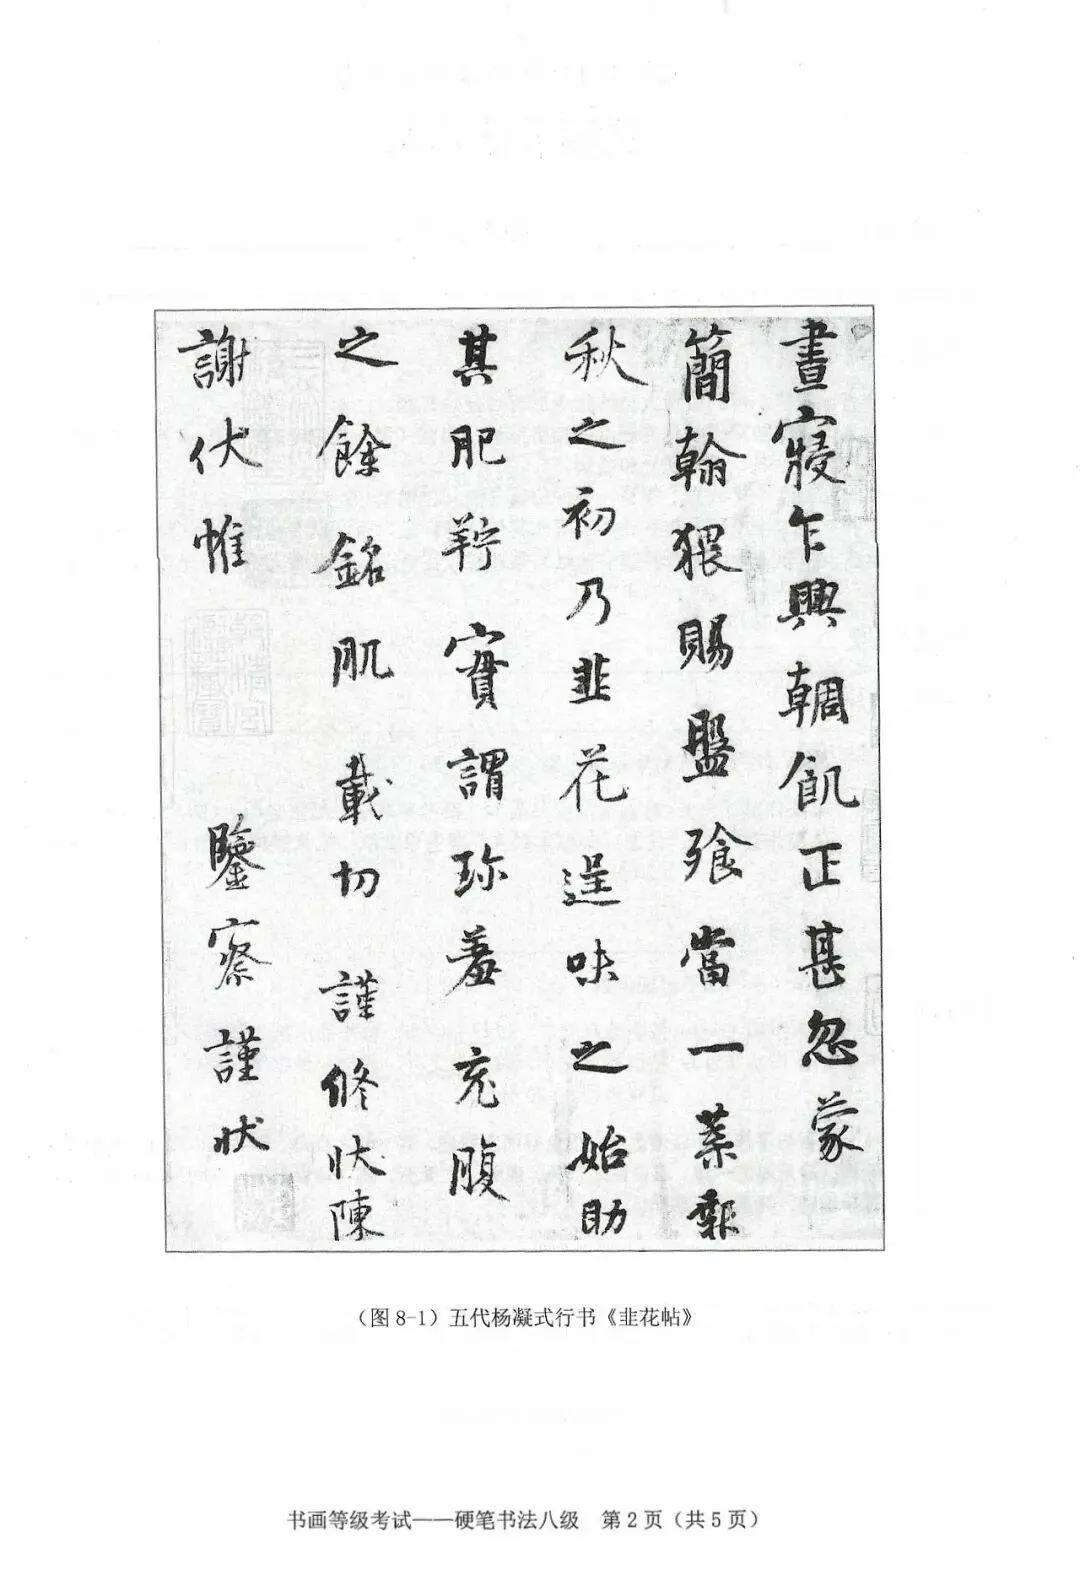 晝寢乍興輖飢正甚忽蒙
簡翰猥賜盤飱當一葉報
秋之初乃韭花逞味之始助
其肥羜實謂珍羞充腹
之餘銘肌載切謹修狀陳
謝伏惟鑒察謹狀
（图 8-1）五代杨凝式行书《韭花帖》
书画等级考试——硬笔书法八级 第 2 页（共 5 页）